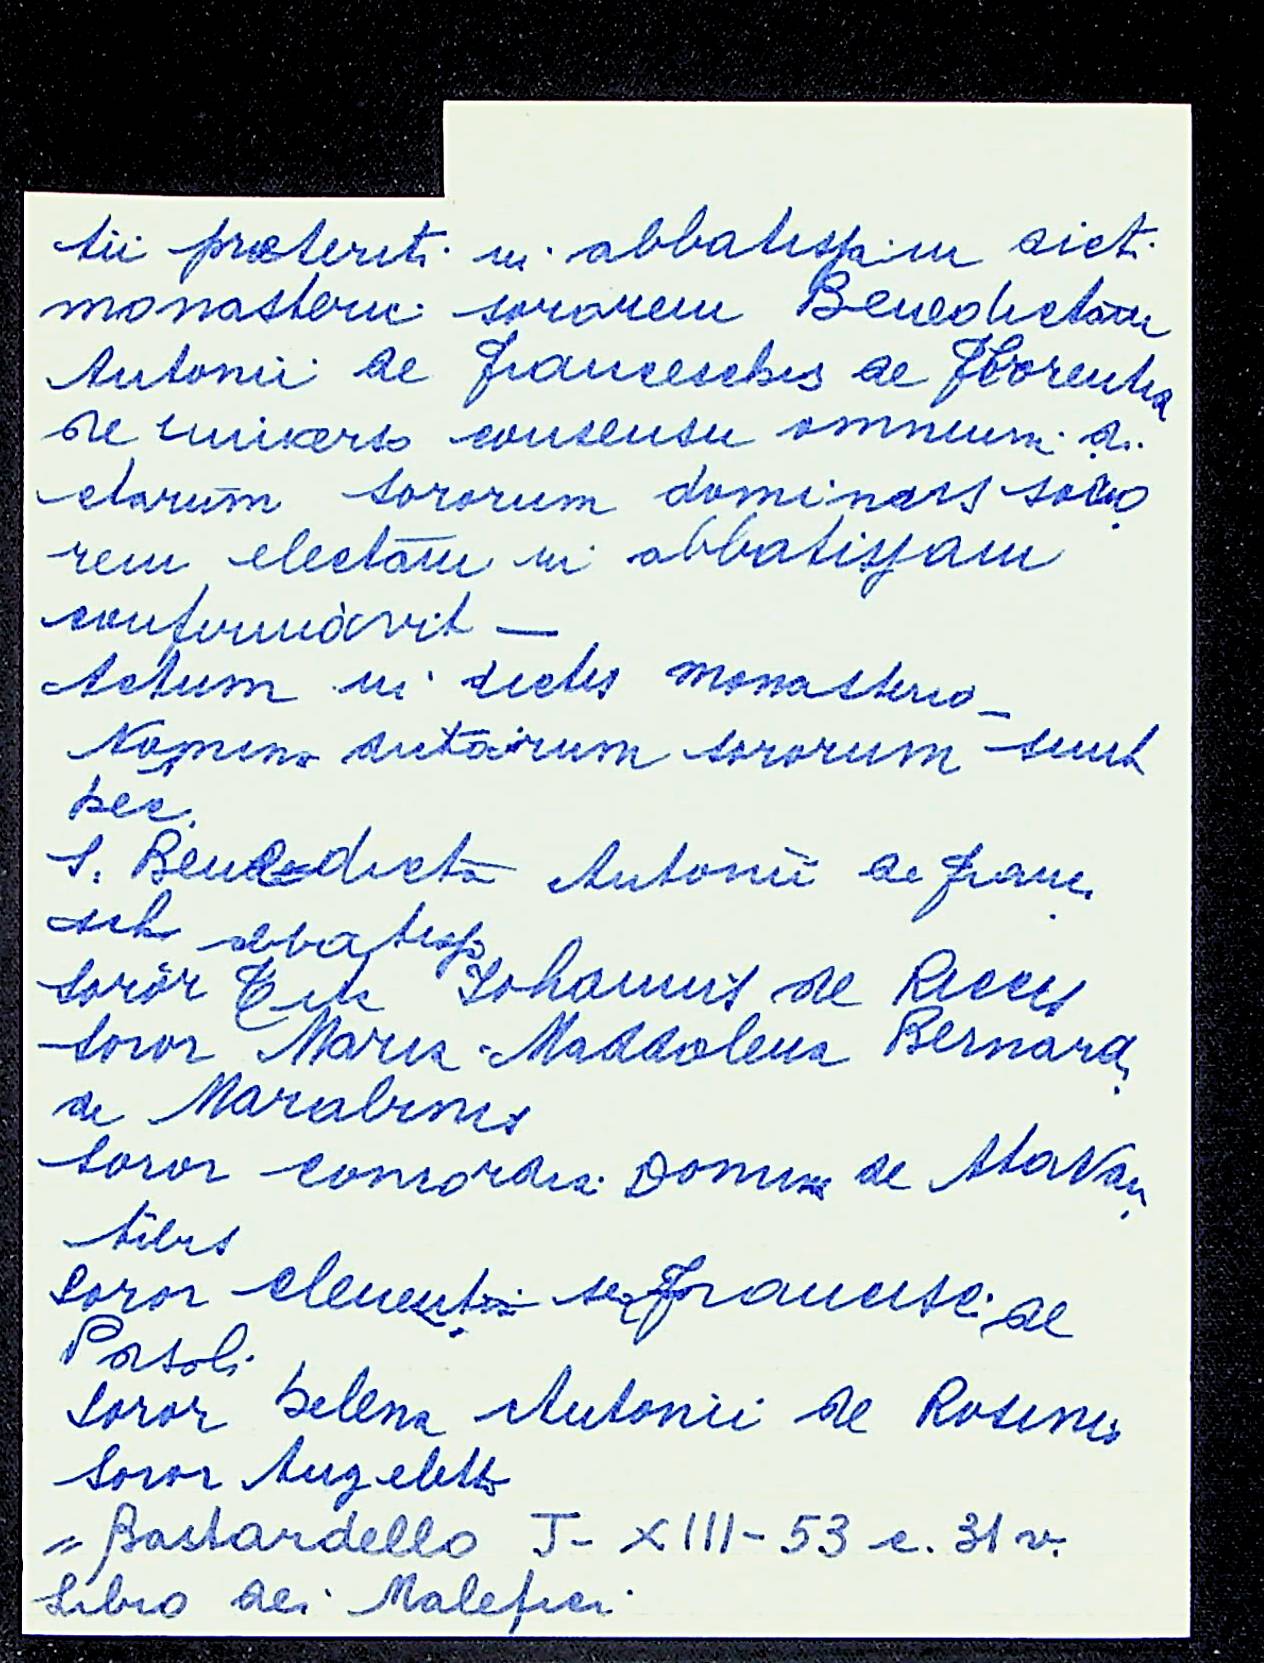 tii preteriti in abbatissam dicti
monasterii sororem Benedictam
Antonii de Franceschis de Florentia
de universo consensu omnium di
ctarum sororum dominars soro
rem electam in abbatissam
confirmavit —
Actum in dictis monasterio —
Nomina dictarum sororum sunt
hec.
S. Benedicta Antonii de Franc
sch abbatissa
Soror Johannis de Riccis
Soror Maria Maddalena Bernardi
de Marabinis
Soror concordia Domin de Atavan
tibus
Soror clementia ser Francisci de
Pasoli
Soror helena Antonii de Rosinis
Soror Angeletta
= Bastardello J - XIII - 53 c. 31 v.
Libro dei Malefici